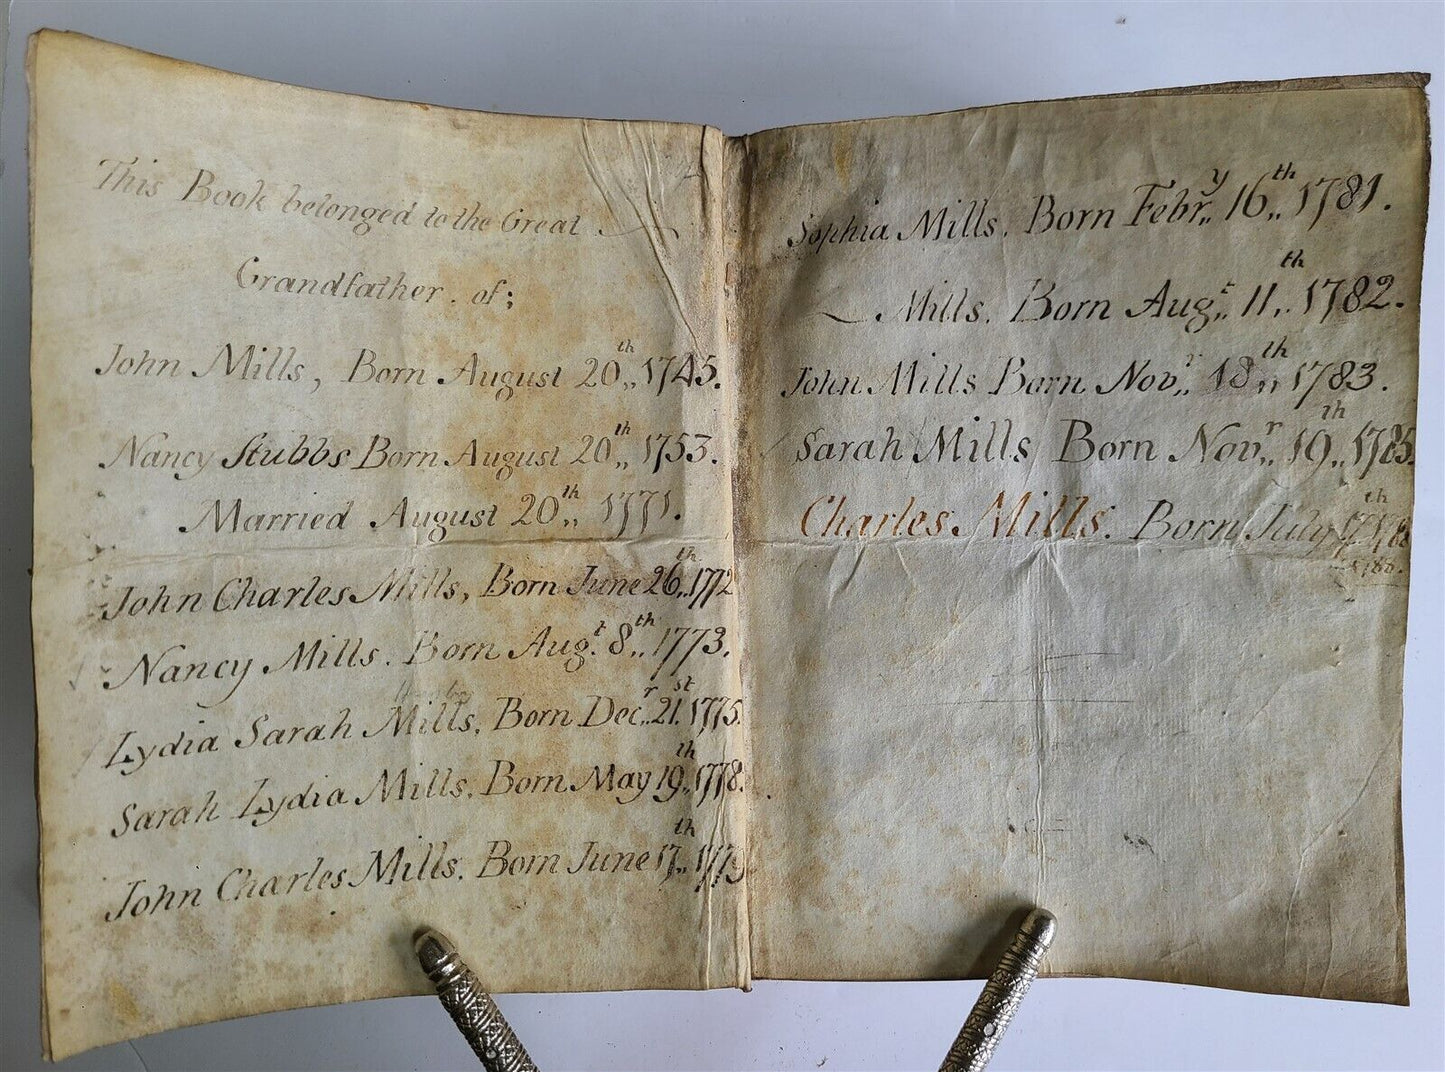 This Book belonged to the Great
Grandfather. of;
John Mills, Born August 20th,, 1745.
Nancy Stubbs Born August 20th,, 1753.
Married August 20th,, 1771.
John Charles Mills, Born June 26th,, 1772
Nancy Mills. Born Augt. 8th,, 1773.
Lydia Sarah Mills, Born Decr,, 21st. 1775.
Sarah Lydia Mills. Born May 19th,, 1778.
John Charles Mills. Born June 17th,, 1779
Sophia Mills. Born Febry,, 16th,, 1781.
Mills. Born Augt,, 11th,, 1782.
John Mills Born Novr,, 18th,, 1783.
Sarah Mills Born Novr,, 19th,, 1785.
Charles Mills. Born July th